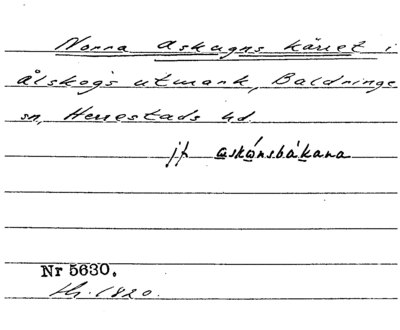 Norra Askugns kärret i
Ålskog's utmark, Baldringe
sn, Herrestads hd.
jf askónsbákana
Nr 5630.
1820.